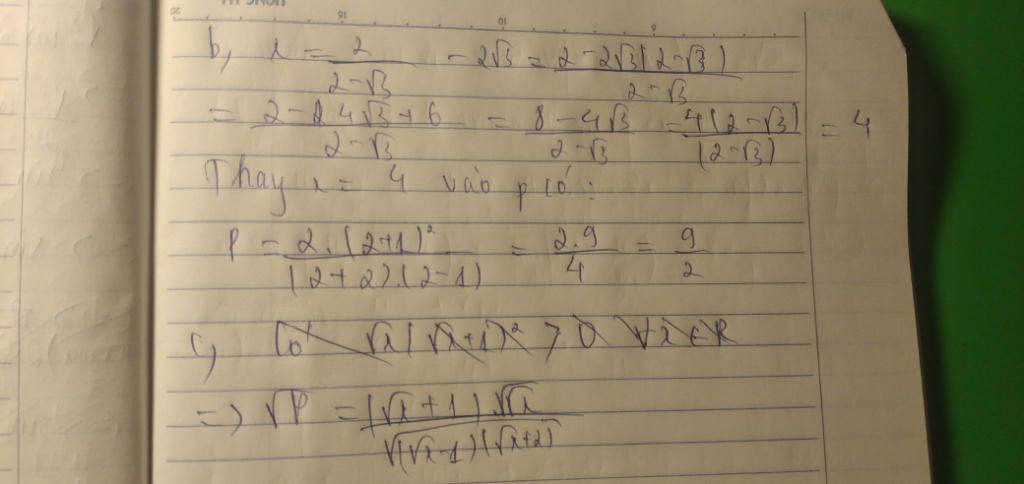 b, x = 2/(2-√3) - 2√3 = (2-2√3(2-√3))/(2-√3)
= (2-4√3+6)/(2-√3) = (8-4√3)/(2-√3) = 4(2-√3)/(2-√3) = 4
Thay x = 4 vào p có:
P = 2.(2+1)²/((2+2).(2-1)) = 2.9/4 = 9/2
c, Có √x(√x+1)² > 0 ∀x∈R
=> √P = (√x+1)√√x/√((√x-1)(√x+2))